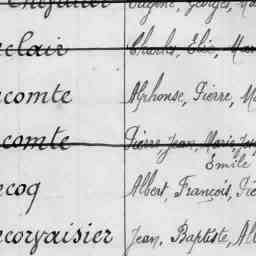 Chevalier Eugène, Georges, Ma
clair Charles, Elie, Mar
comte Alphonse, Pierre, Ma
comte Pierre, Jean, Marie, Jos
Emile
ecoq Albert, François, Pie
ecorvaisier Jean, Baptiste, Alb